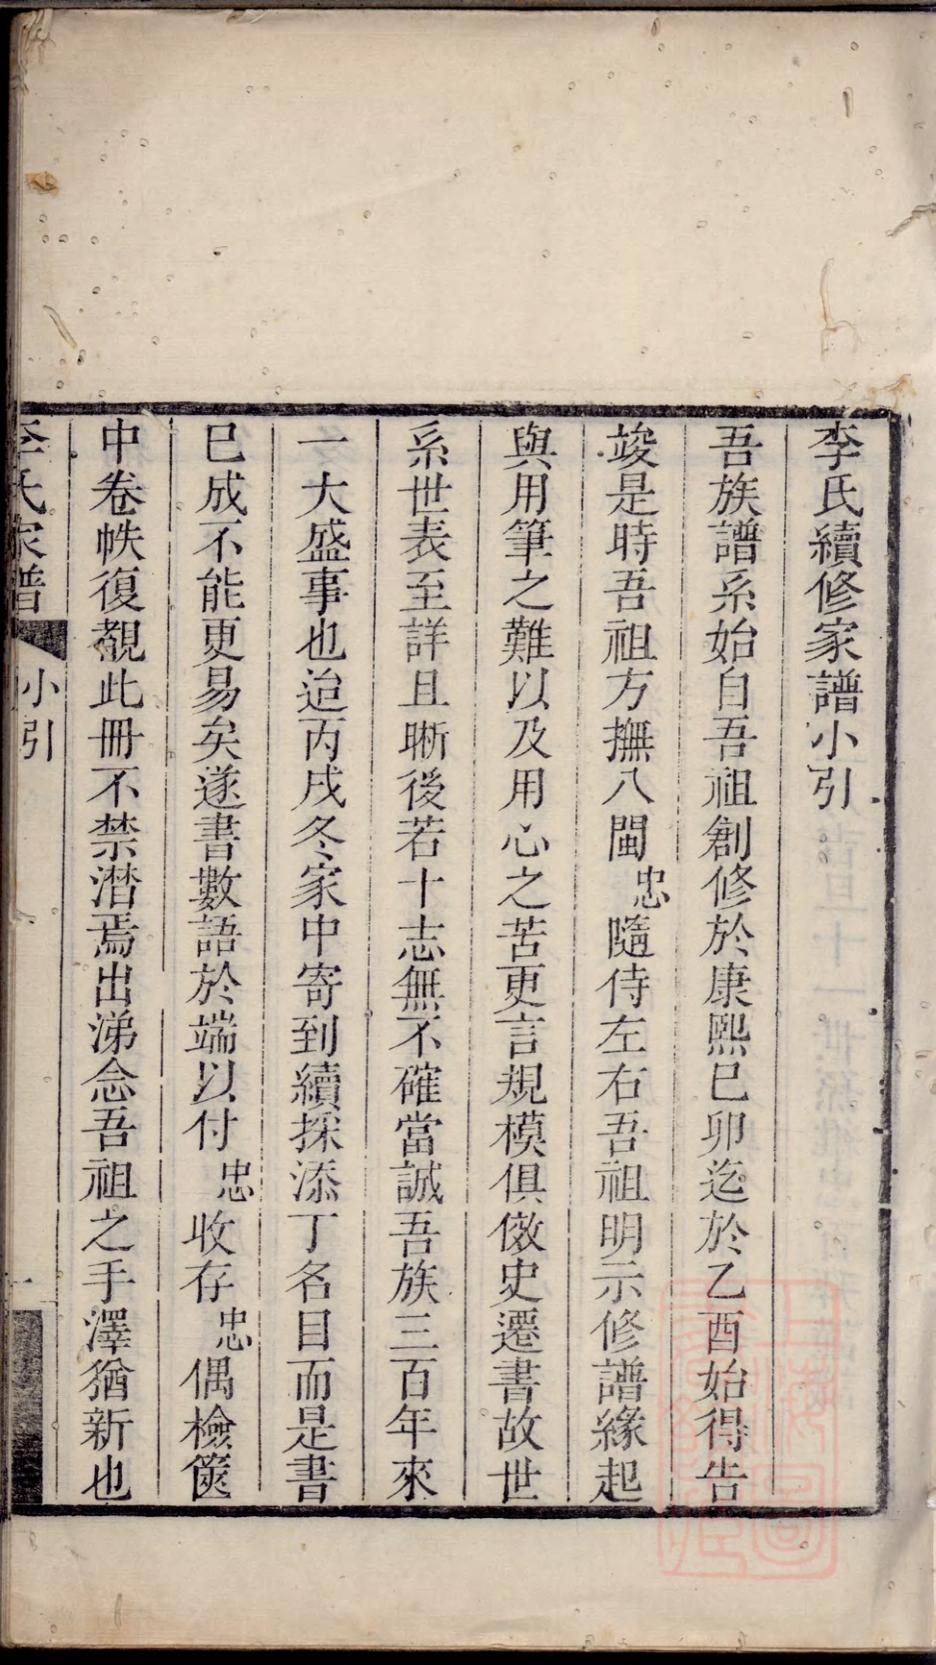 李氏續修家譜小引
吾族譜系始自吾祖創修於康熙巳卯迄於乙酉始得告
竣是時吾祖方撫八閩忠隨侍左右吾祖明示修譜緣起
與用筆之難以及用心之苦更言規模俱倣史遷書故世
系世表至詳且晰後若十志無不確當誠吾族三百年來
一大盛事也迨丙戌冬家中寄到續採添丁名目而是書
巳成不能更易矣遂書數語於端以付忠收存忠偶檢篋
中卷帙復覩此冊不禁潸焉出涕念吾祖之手澤猶新也
李氏家譜 小引 一